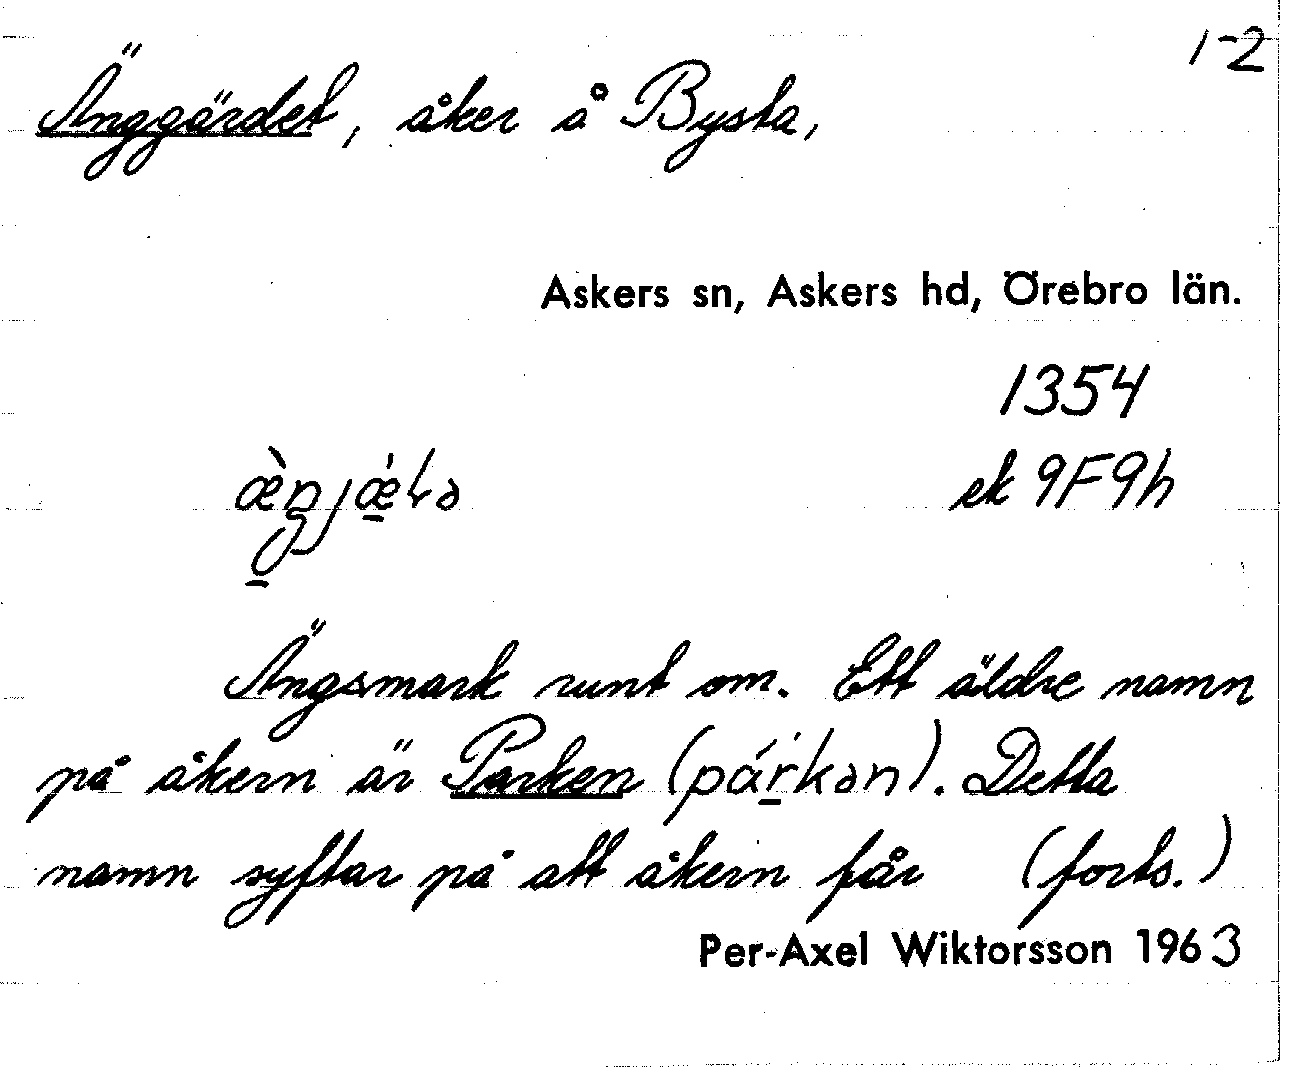 1-2
Änggärdet, åker å Bysta,
Askers sn, Askers hd, Örebro län.
1354
ek 9F9h
Ängsmark runt om. Ett äldre namn
på åkern är Parken (párkən). Detta
namn syftar på att åkern får (forts.)
Per-Axel Wiktorsson 1963